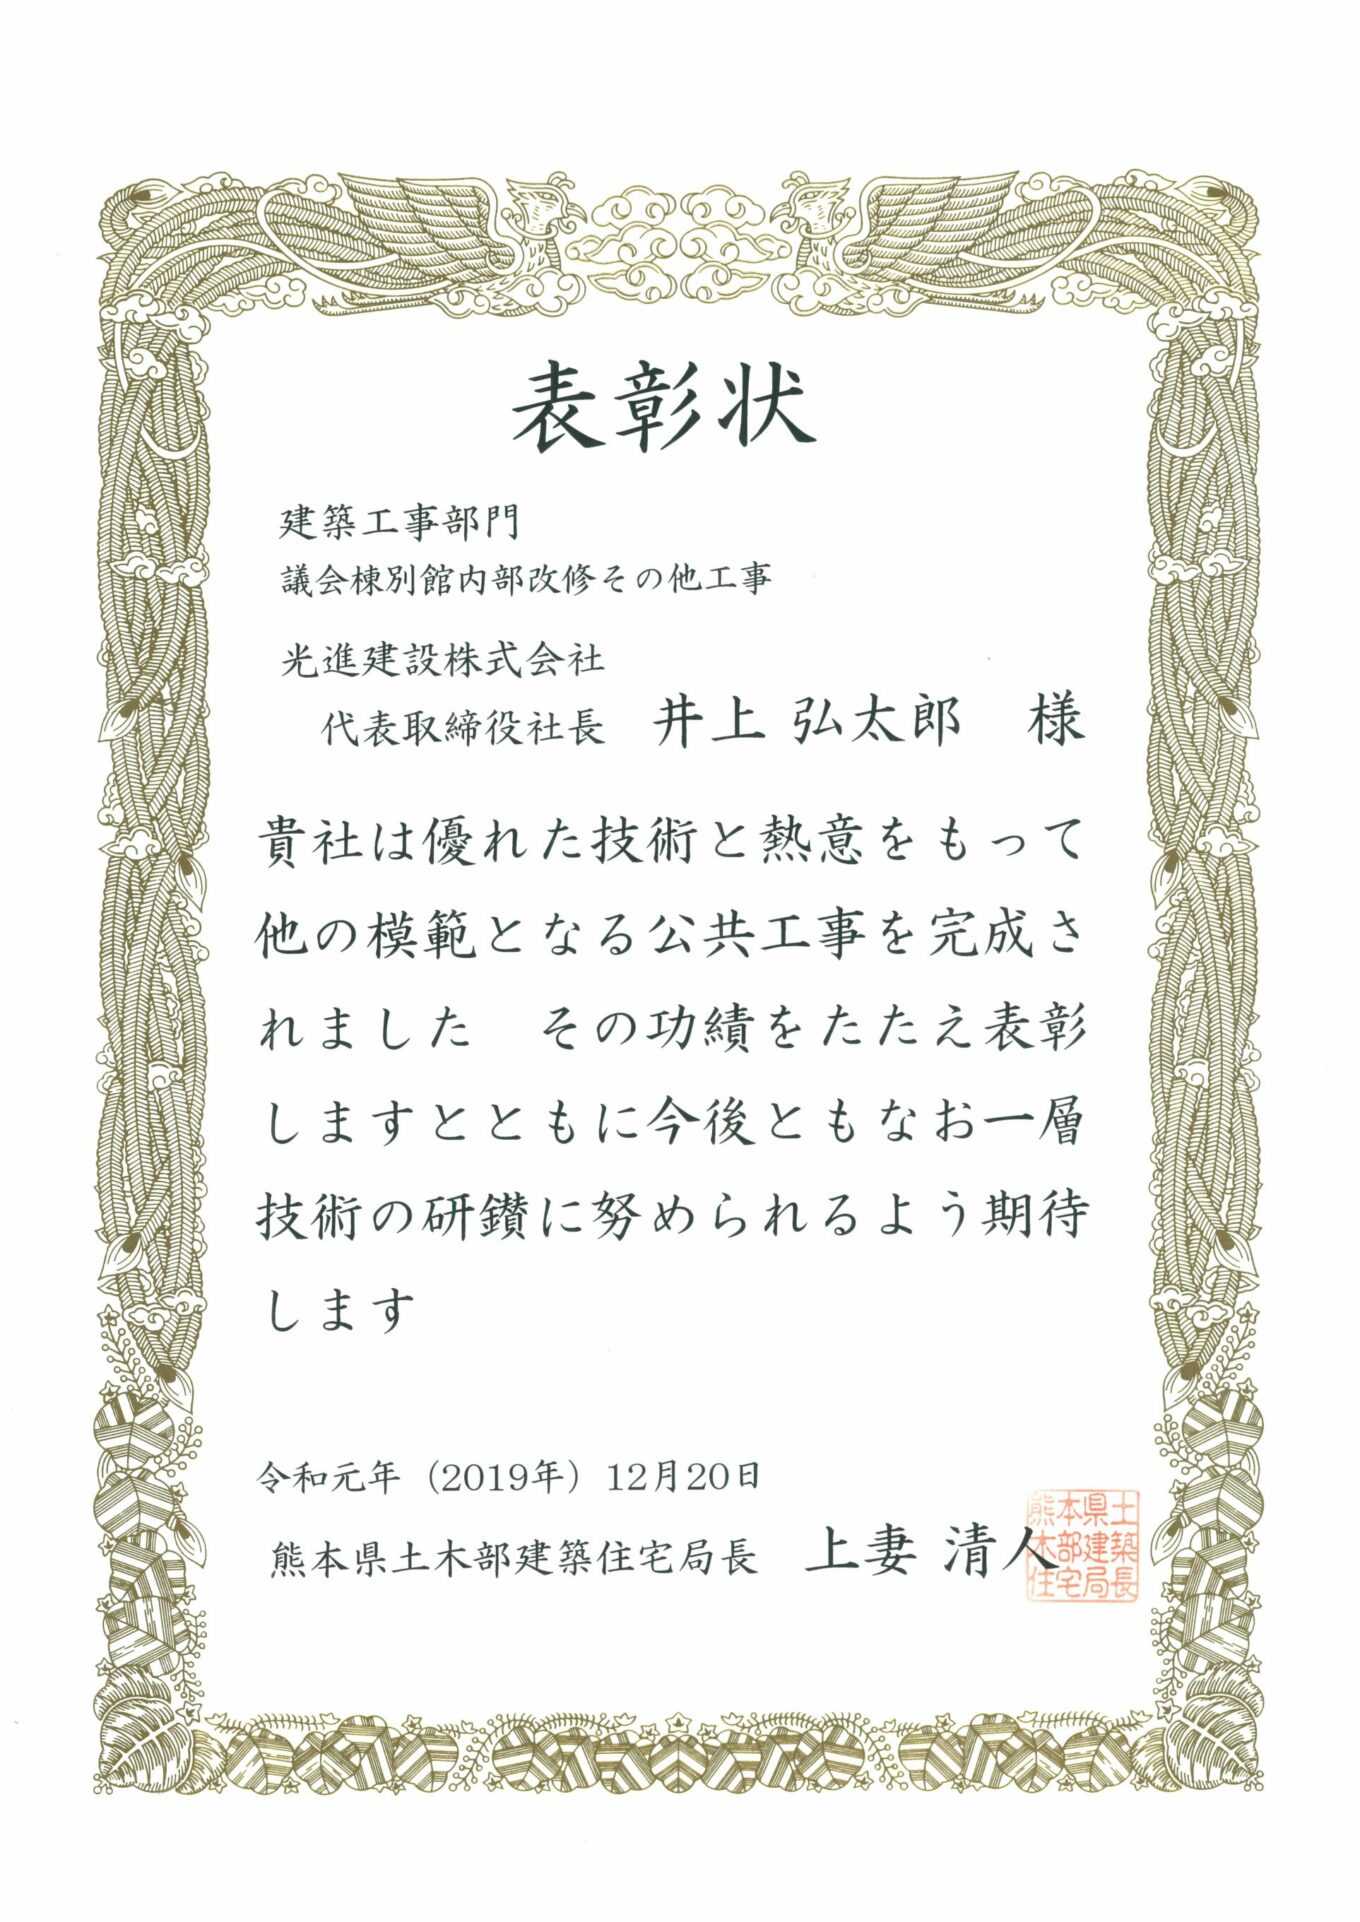 表彰状
建築工事部門
議会棟別館内部改修その他工事
光進建設株式会社
代表取締役社長 井上 弘太郎 様
貴社は優れた技術と熱意をもって
他の模範となる公共工事を完成さ
れました その功績をたたえ表彰
しますとともに今後ともなお一層
技術の研鑽に努められるよう期待
します
令和元年（2019年）12月20日
熊本県土木部建築住宅局長 上妻 清人
熊本県土
木部建築
住宅局長